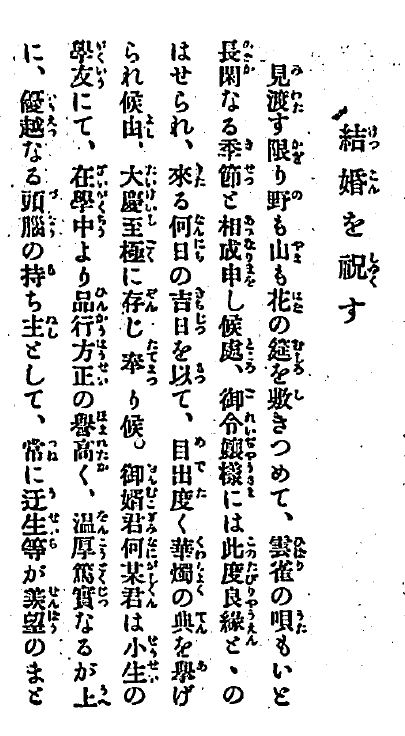 結婚を祝す
見渡す限り野も山も花の筵を敷きつめて、雲雀の唄もいと
長閑なる季節と相成申し候處、御令孃樣には此度良緣と、の
はせられ、來る何日の吉日を以て、目出度く華燭の典を擧げ
られ候由、大慶至極に存じ奉り候。御婿君何某君は小生の
學友にて、在學中より品行方正の譽高く、溫厚篤實なるが上
に、優越なる頭腦の持ち主として、常に迂生等が羨望のまと